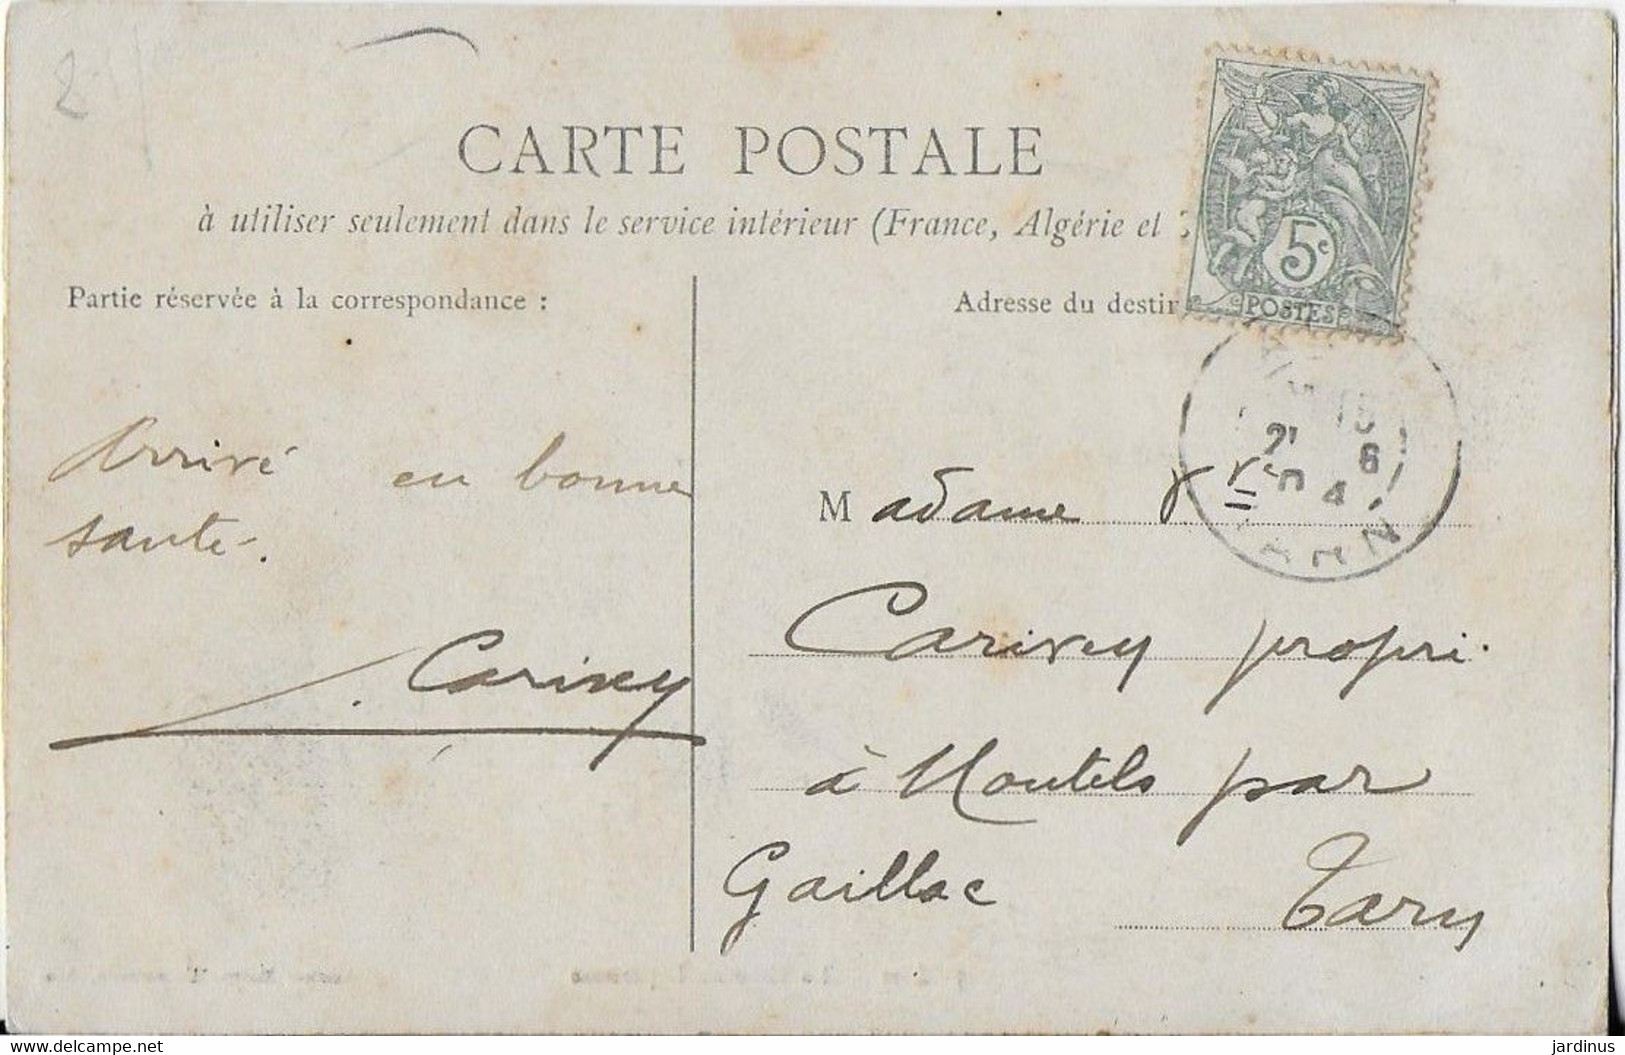 CARTE POSTALE
à utiliser seulement dans le service intérieur (France, Algérie et
Partie réservée à la correspondance :
Adresse du destin
5c
POSTES
Arrivé en bonne
santé.
Carivey
Madame Vve
Carivey propri.
à Montels par
Gaillac Tarn
21
6
04
TARN
www.delcampe.net
jardinus